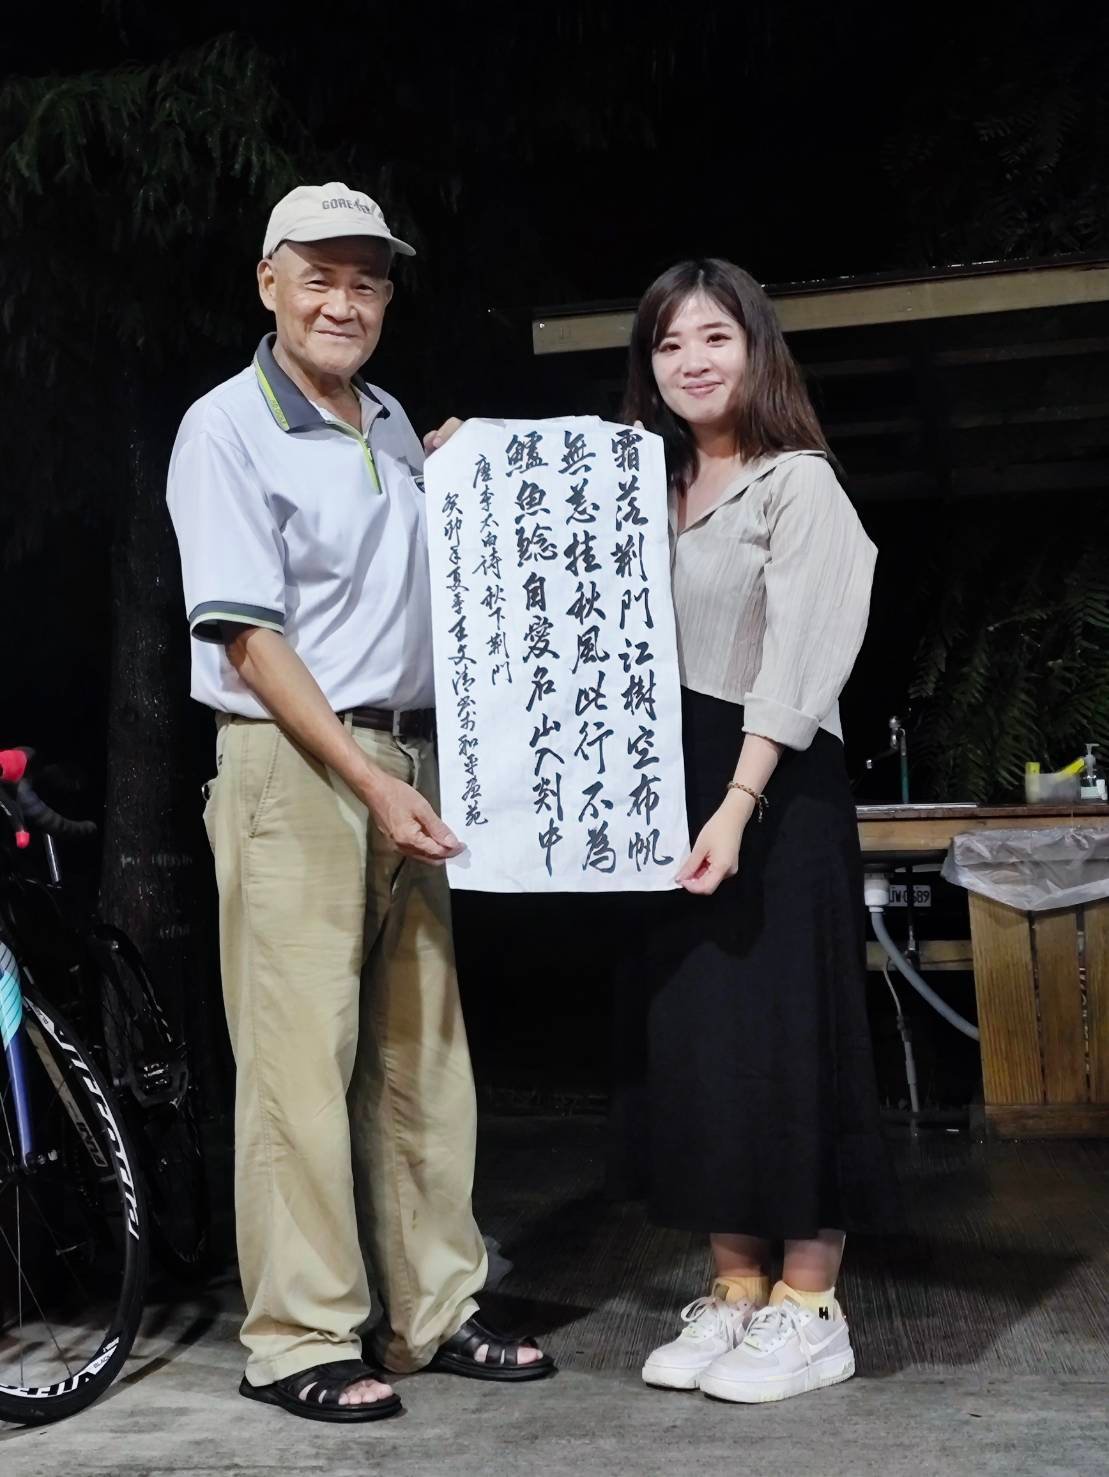 霜落荊門江樹空布帆
無恙挂秋風此行不為
鱸魚鱠自愛名山入剡中
唐李太白詩秋下荊門
癸卯年夏季王文清書於和平畫苑
GORE
VITTORIA